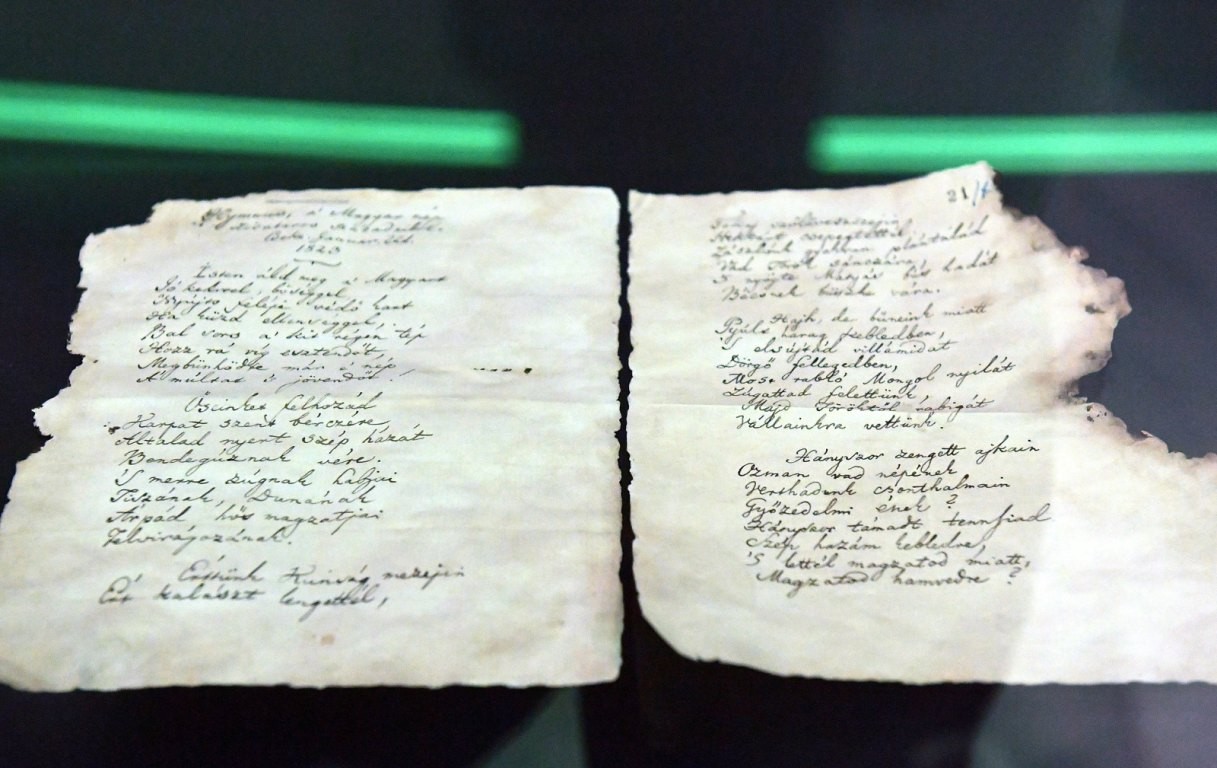 Hymnus, a' Magyar nép
zivataros századaiból.
Cseke, Januar. 22d.
1823
Isten áldd meg a' Magyart
Jó kedvvel, bőséggel,
Nyújts feléje védő kart
Ha küzd ellenséggel,
Bal sors a' kit régen tép
Hozz rá víg esztendőt,
Megbünhödte már e' nép
A' múltat 's jövendőt.
Őseinket felhozád
Kárpát szent bérczére,
Általad nyert szép hazát
Bendegúznak vére.
'S merre zúgnak habjai
Tiszának, Dunának
Árpád hős magzatjai
Felvirágozának.
Értünk Kunság mezején
Ért kalászt lengettél,
21/
Tokaj szőlővesszein
Nektárt csepegtettél.
Zászlónk gyakran plántálád
Vad Török sánczaira,
'S nyögte Mátyás bús hadát
Bécsnek büszke vára.
Hajh, de bűneink miatt
Gyúlt harag kebledben,
'S elsújtád villámidat
Dörgő fellegedben,
Most rabló Mongol nyilát
Zúgattad felettünk,
Majd Töröktől rabigát
Vállainkra vettünk.
Hányszor zengett ajkain
Ozman vad népének
Verthadunk csonthalmain
Győzedelmi ének?
Hányszor támadt tennfiad
Szép hazám kebledre,
'S lettél magzatod miatt,
Magzatod hamvedre?